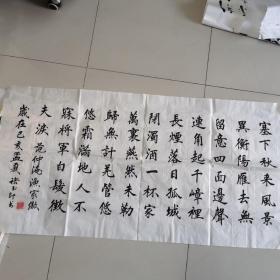 塞下秋来風景
異衡陽雁去無
留意四面邊聲
連角起千嶂裡
長煙落日孤城
閉濁酒一杯家
萬裏燕然未勒
歸無計羌管悠
悠霜滿地人不
寐將軍白髮徵
夫淚 范仲淹漁家傲
歲在己亥孟夏